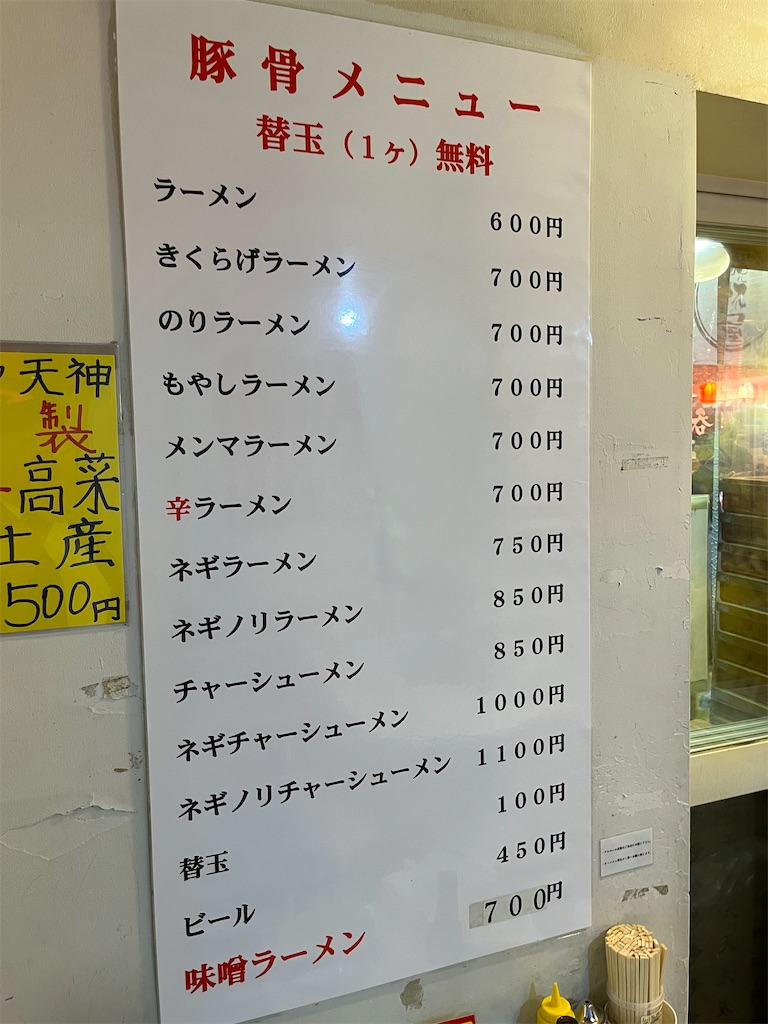 豚骨メニュー
替玉（1ヶ）無料
ラーメン 600円
きくらげラーメン 700円
のりラーメン 700円
もやしラーメン 700円
メンマラーメン 700円
辛ラーメン 700円
ネギラーメン 750円
ネギノリラーメン 850円
チャーシューメン 850円
ネギチャーシューメン 1000円
ネギノリチャーシューメン 1100円
替玉 100円
ビール 450円
味噌ラーメン 700円
天神
製
高菜
土産
500円